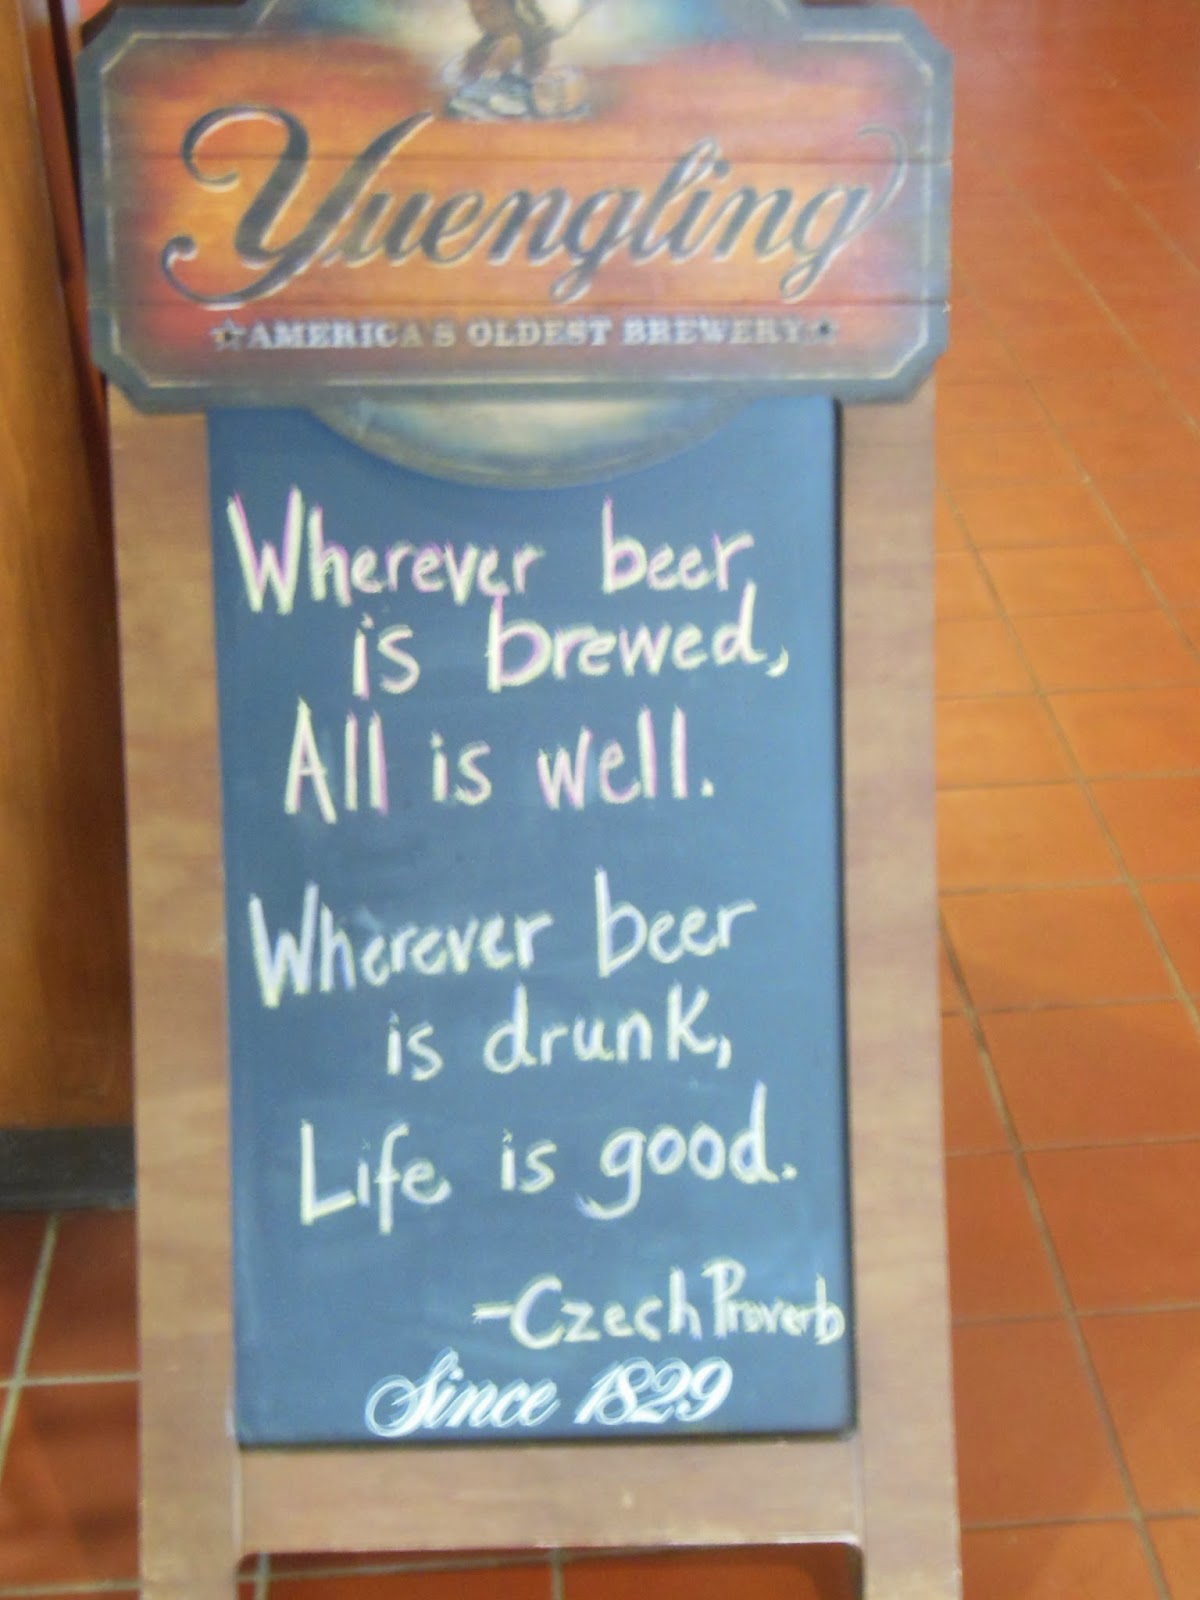 Yuengling
AMERICA'S OLDEST BREWERY
Wherever beer
is brewed,
All is well.
Wherever beer
is drunk,
Life is good.
-Czech Proverb
Since 1829